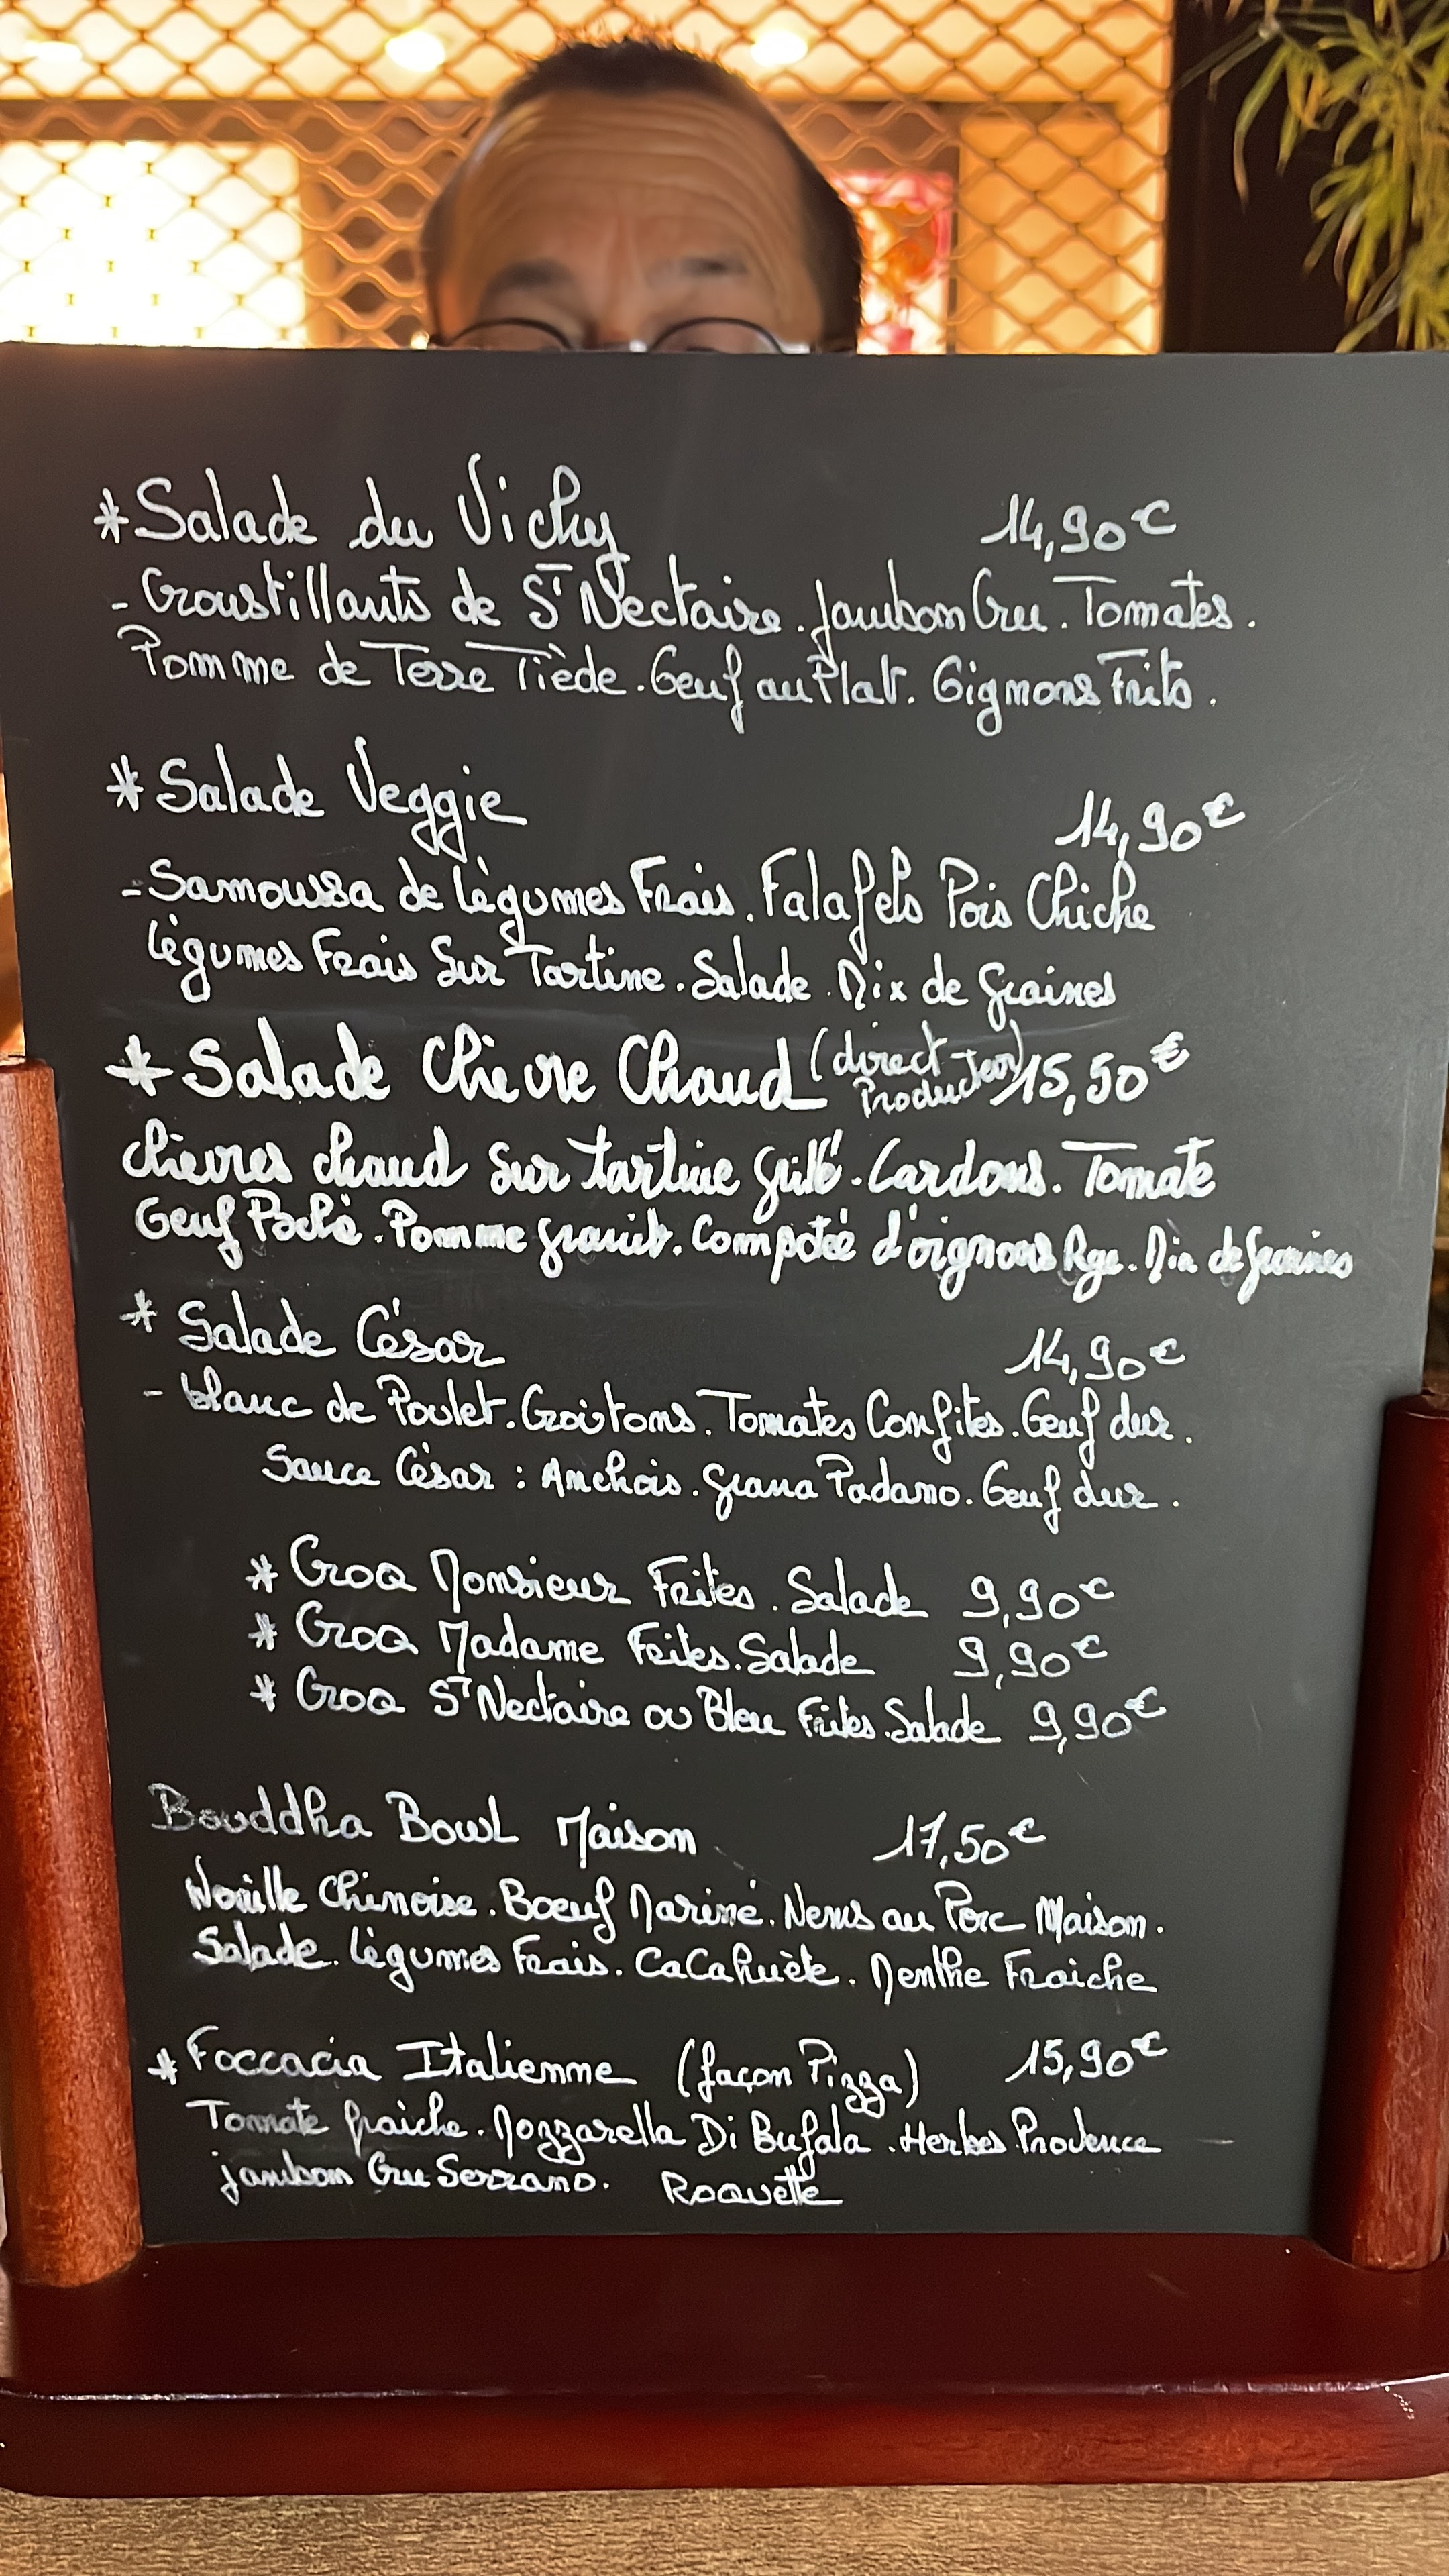 *Salade du Vichy 14,90€
- Croustillants de St Nectaire. Jambon Cru. Tomates.
Pomme de Terre Tiède. Oeuf au Plat. Oignons Frits.
* Salade Veggie 14,90€
- Samoussa de légumes Frais. Falafels Pois Chiche
légumes Frais Sur Tartine. Salade. Mix de Graines
* Salade Chèvre Chaud (direct Producteur) 15,50€
Chèvres chaud sur tartine grillé. Cardons. Tomate
Oeuf Poché. Pomme granit. Compotée d'oignons Rge. Mix de Graines
* Salade César 14,90€
- blanc de Poulet. Croûtons. Tomates Confites. Oeuf dur.
Sauce César : Anchois. Grana Padano. Oeuf dur.
* Croq Monsieur Frites. Salade 9,90€
* Croq Madame Frites. Salade 9,90€
* Croq St Nectaire ou Bleu Frites. Salade 9,90€
Bouddha Bowl Maison 17,50€
Nouille Chinoise. Boeuf Mariné. Nems au Porc Maison.
Salade. légumes Frais. CaCahuète. Menthe Fraiche
* Foccacia Italienne (façon Pizza) 15,90€
Tomate fraiche. Mozzarella Di Bufala. Herbes Provence
jambon Cru Serrano. Roquette